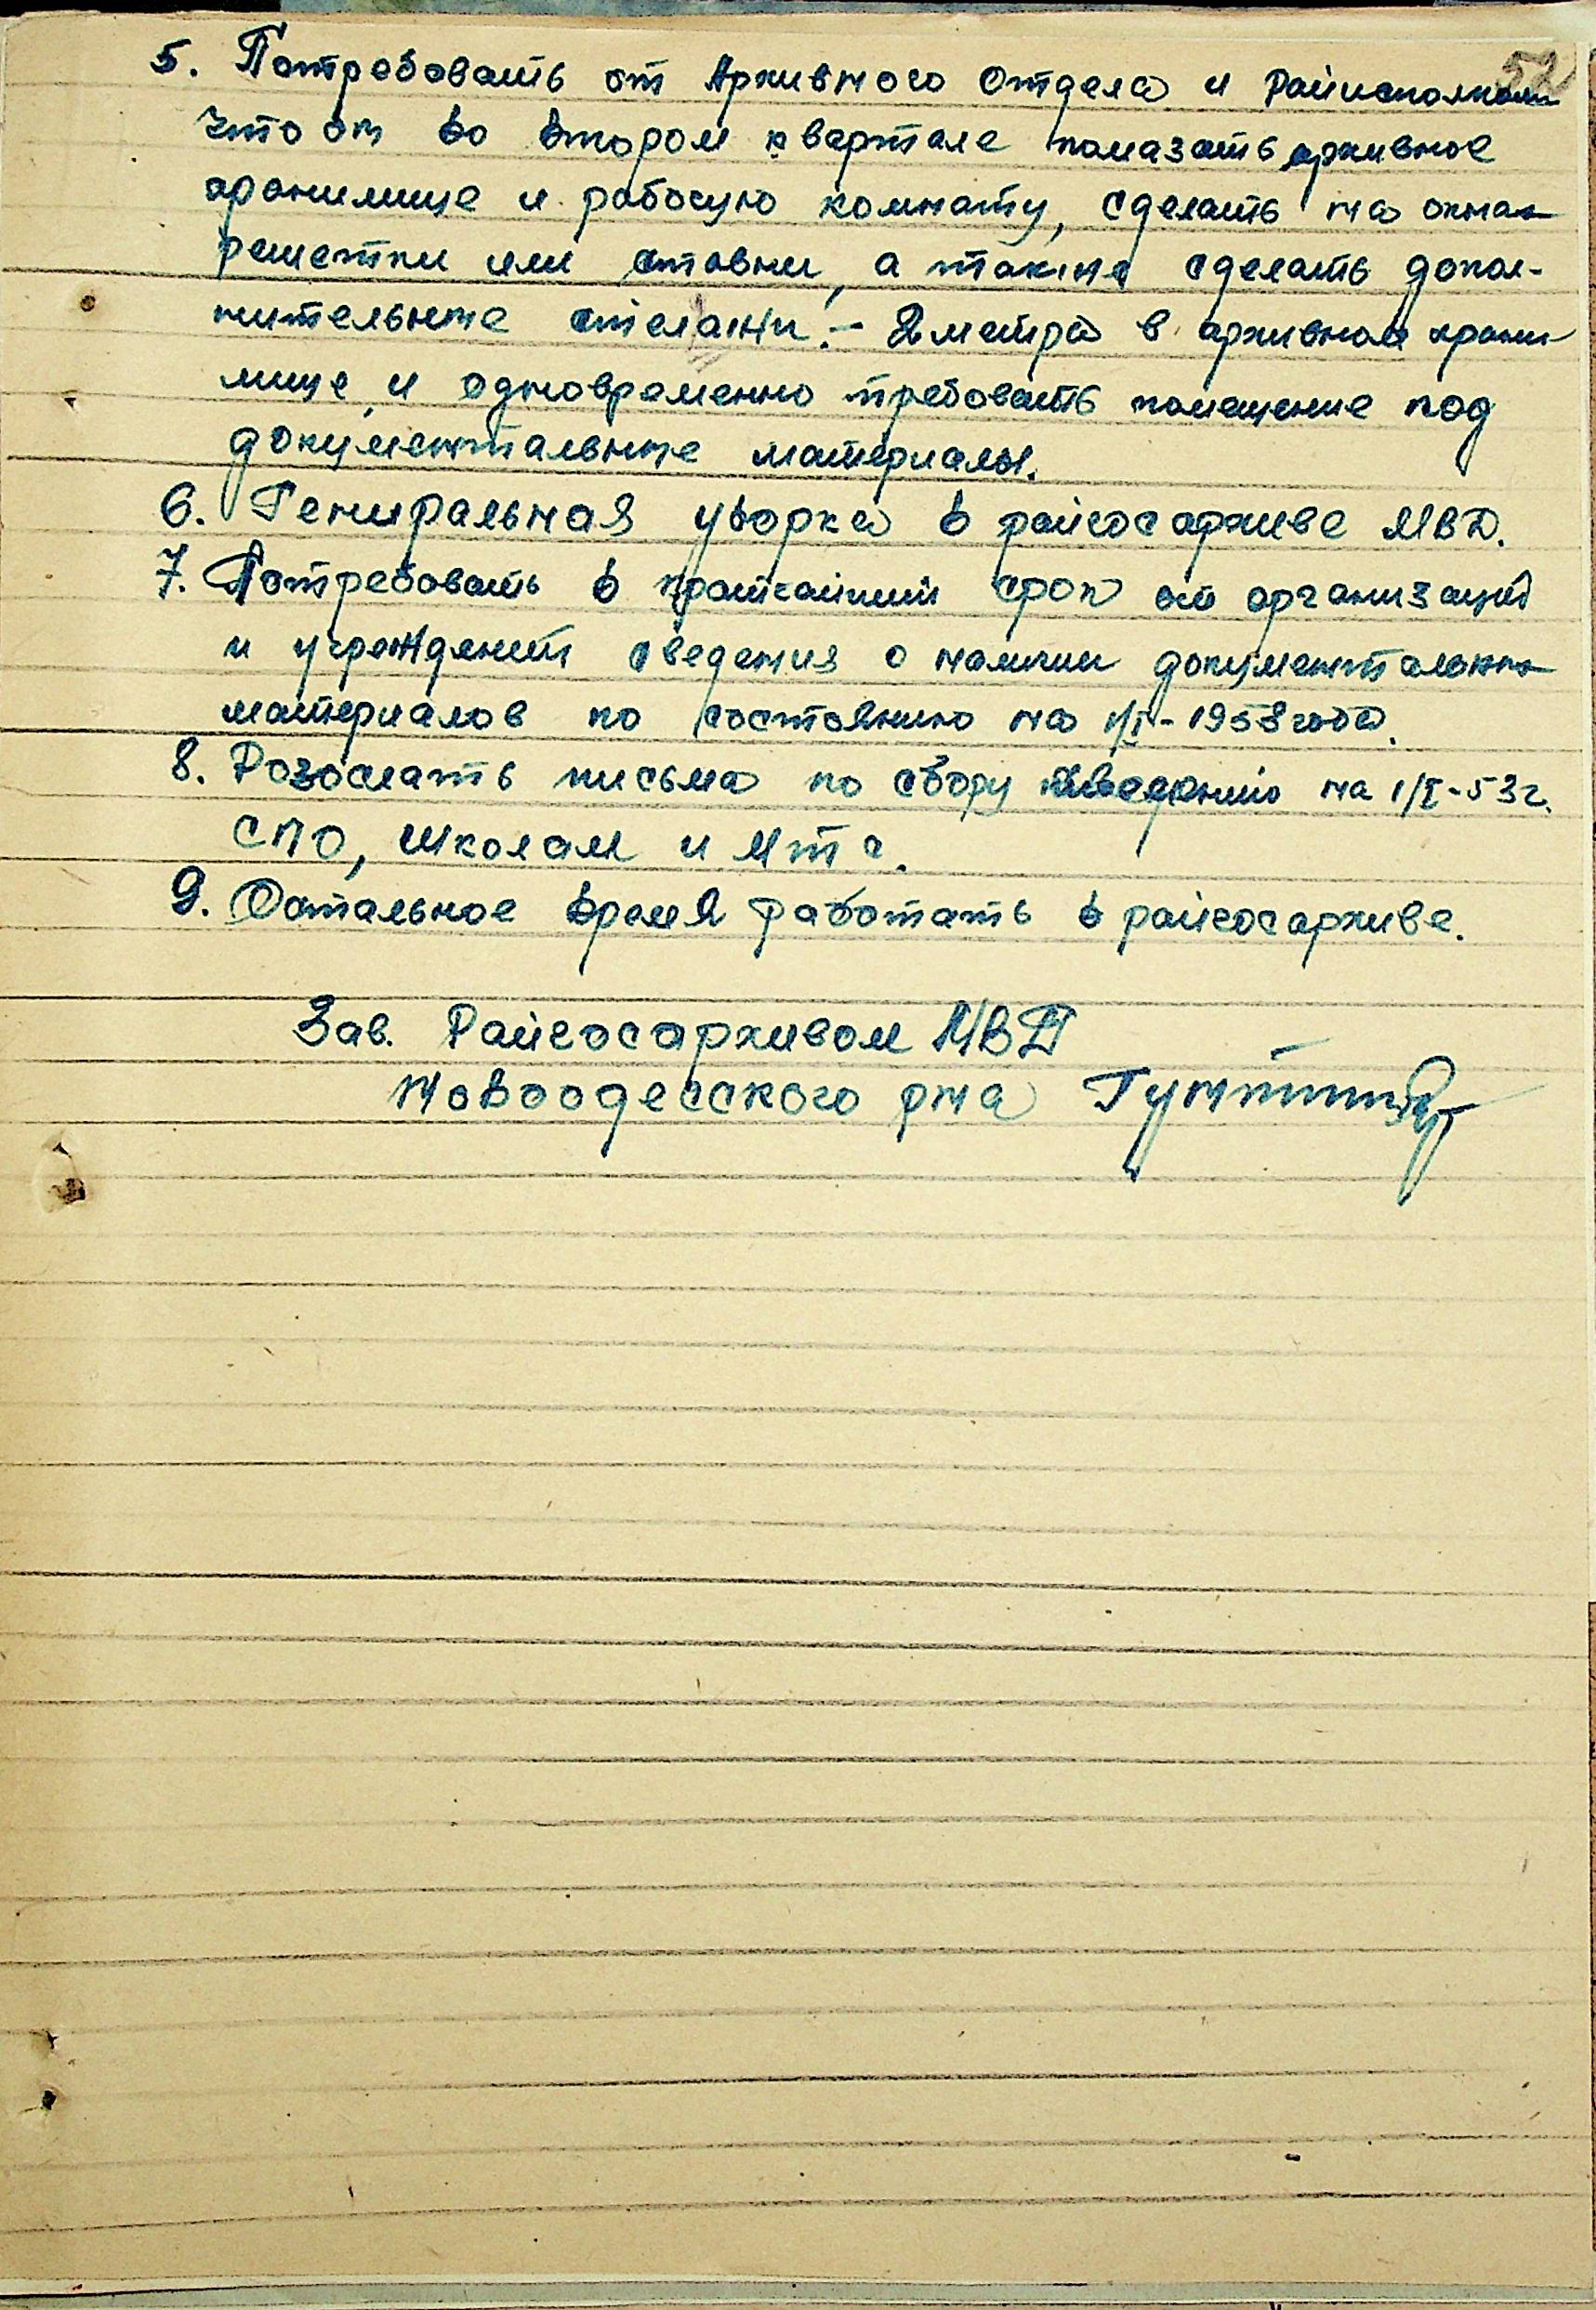 52
5. Потребовать от Архивного отдела и Райисполкома
чтоби во втором квартале помазать архивное
хранилище и рабочую комнату, сделать на окнах
решетки или ставни, а также сделать допол-
нительные стелажи.- 2 метра в архивное храни-
лище, и одновременно требовать помещение под
документальные материалы.
6. Гениральная уборка в райгосархиве МВД.
7. Потребовать в кратчайший срок от организаций
и учреждений сведения о наличии документальных
материалов по состоянию на 1/I-1953 года.
8. Розослать письма по сбору сведений на 1/I-53г.
СПО, школам и Мтс.
9. Остальное время работать в райгосархиве.
Зав. Райгосархивом МВД
Новоодесского р-на